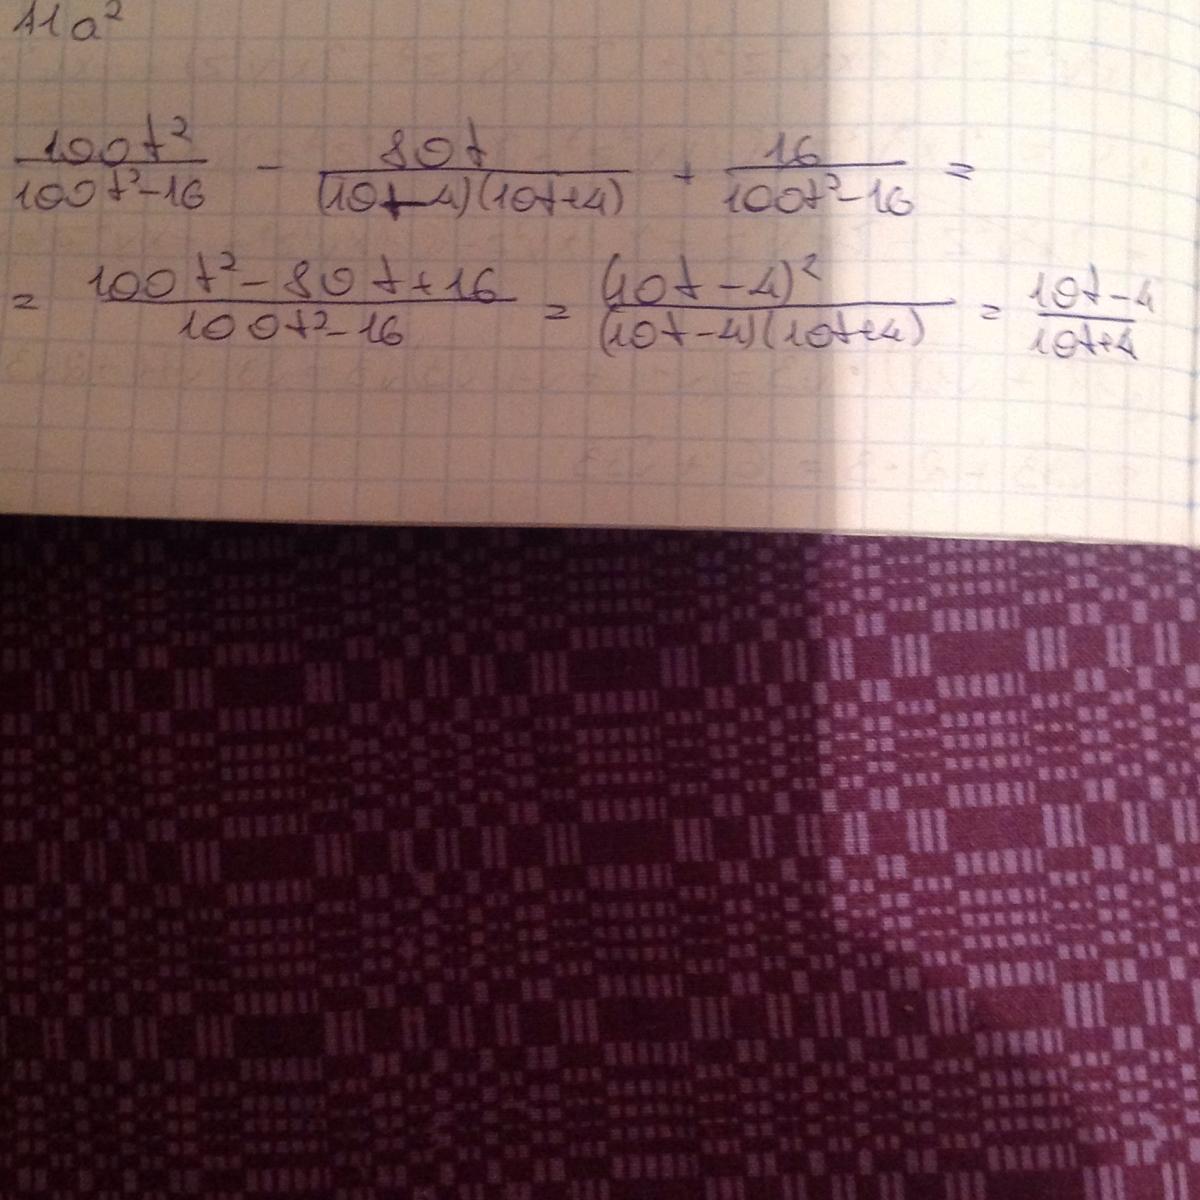 11a²
100t²/(100t²-16) - 80t/((10t-4)(10t+4)) + 16/(100t²-16) =
= (100t²-80t+16)/(100t²-16) = (10t-4)²/((10t-4)(10t+4)) = (10t-4)/(10t+4)